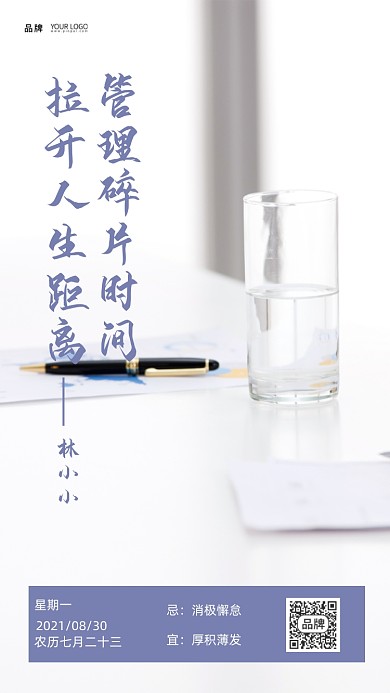 品牌
YOUR LOGO
管理碎片时间
拉开人生距离
——林小小
星期一
2021/08/30
农历七月二十三
忌：消极懈怠
宜：厚积薄发
品牌